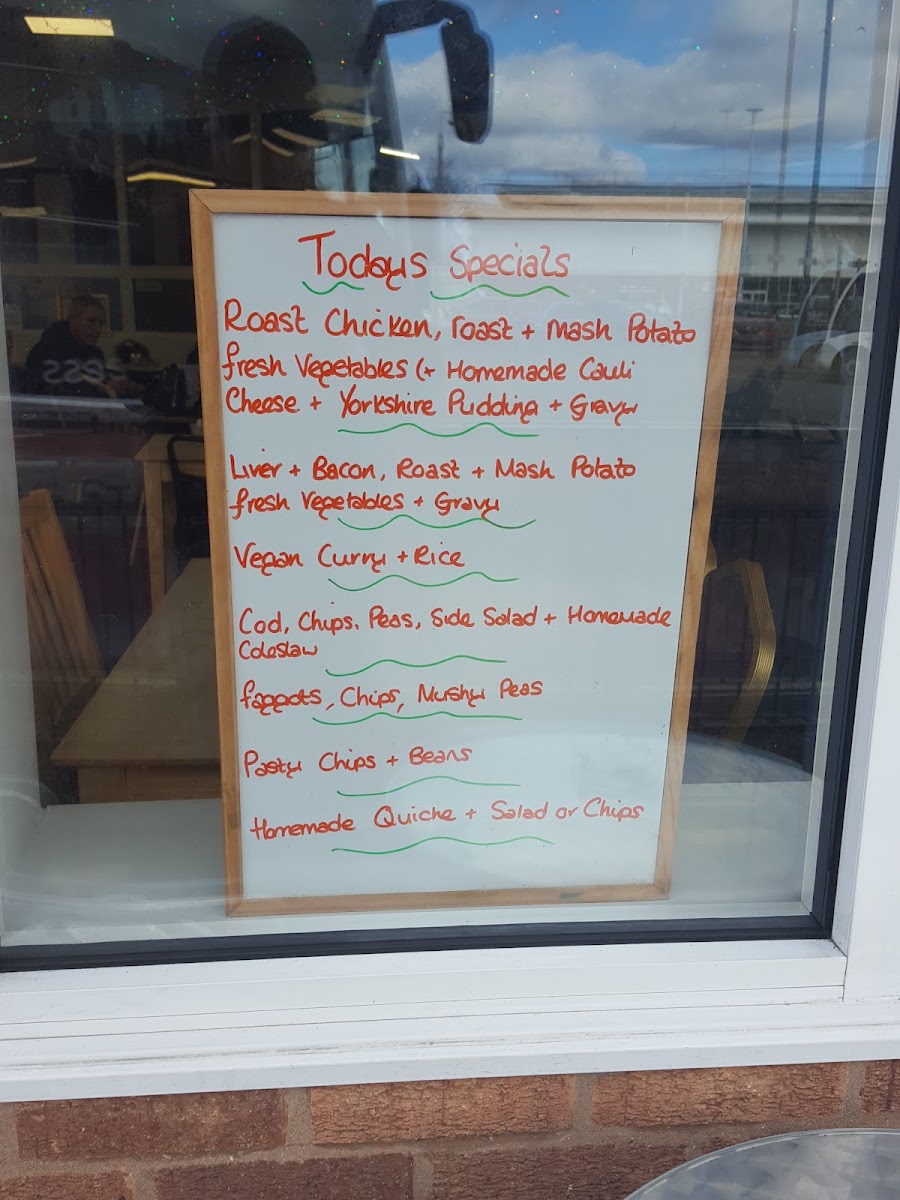 Todays Specials
Roast Chicken, roast + mash Potato
fresh Vegetables (+ Homemade Cauli
Cheese + Yorkshire Pudding + Gravy
Liver + Bacon, Roast + Mash Potato
fresh Vegetables + Gravy
Vegan Curry + Rice
Cod, Chips, Peas, Side Salad + Homemade
Coleslaw
faggots, Chips, Mushy Peas
Pasty Chips + Beans
Homemade Quiche + Salad or Chips